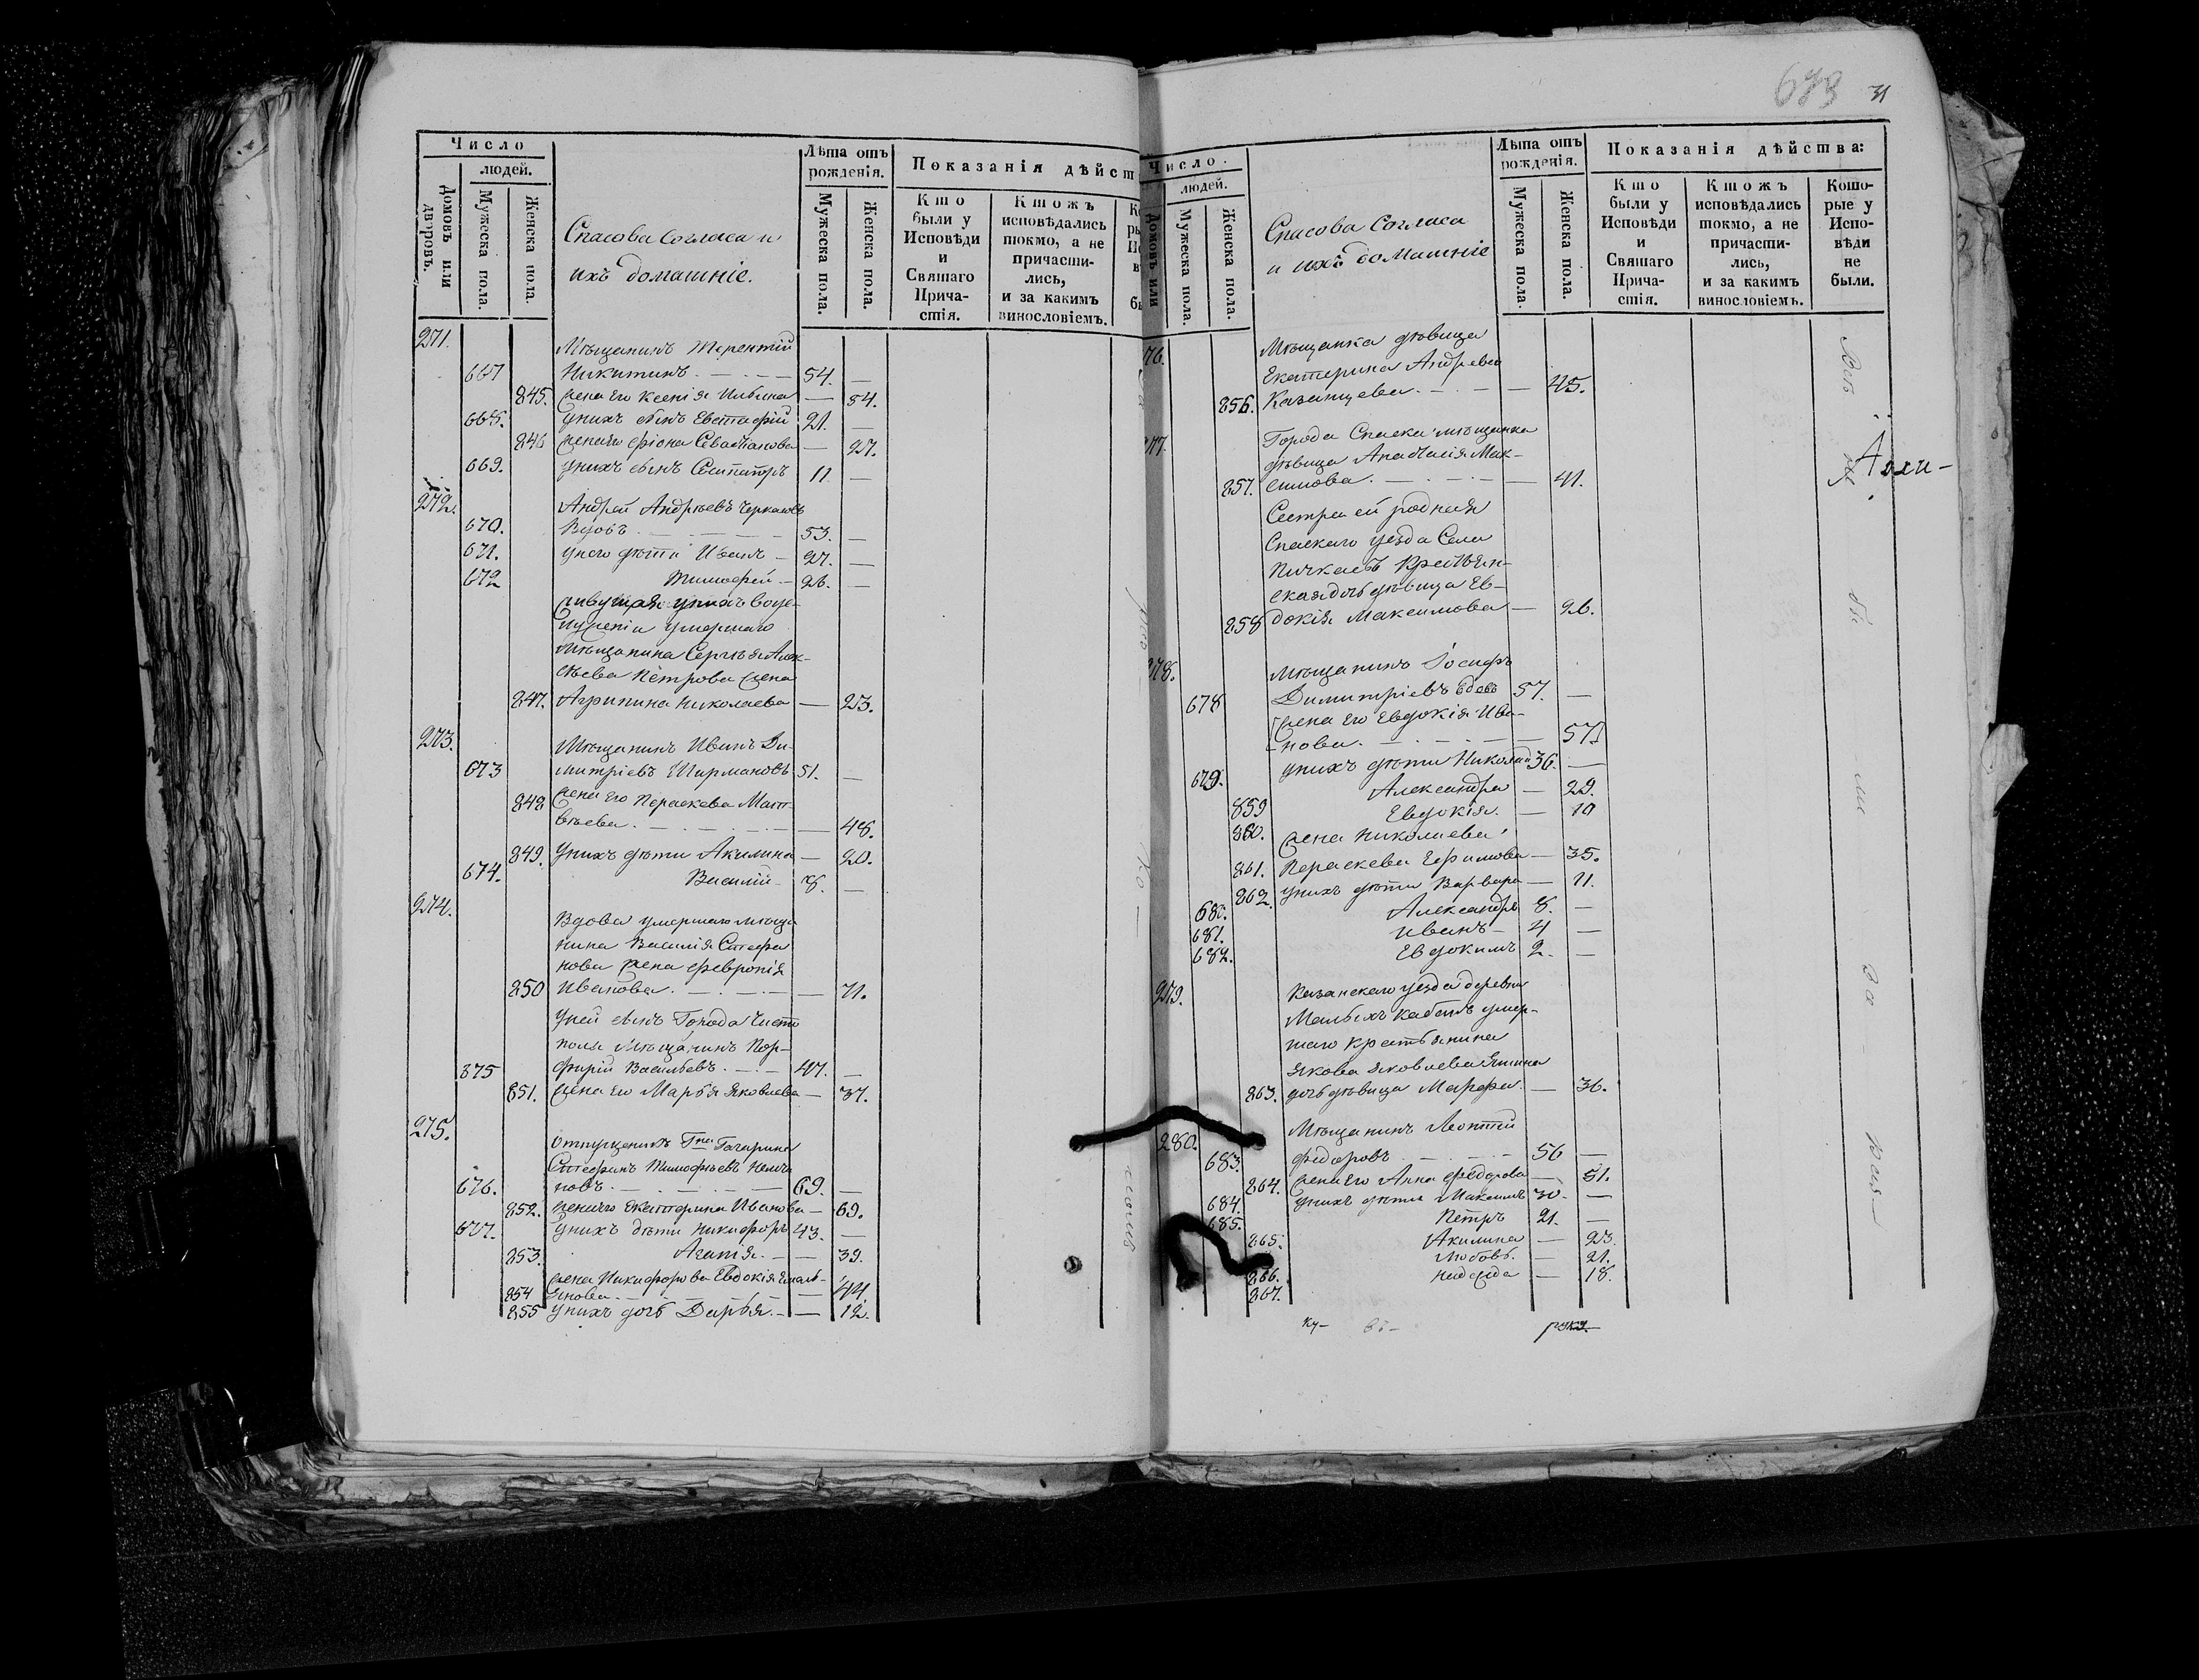 Число
людей.
Домовъ или дворовъ.
Мужеска пола.
Женска пола.
Спасова Согласа и
ихъ домашніе.
Лѣта отъ рожденія.
Мужеска пола.
Женска пола.
Показанія дѣйст
Кто были у Исповѣди и Святаго Прича-стія.
Ктожъ исповѣдались токмо, а не причасти-лись, и за какимъ винословіемъ.
271. Мѣщанинъ Терентій
667 Никитинъ. 54. —
845. жена его Ксенія Ильина — 54.
668. у нихъ сынъ Евстафій 21. —
846 жена его Фіона Севастіанова — 27.
669. у нихъ сынъ Сосипатръ 11 —
272. Андрей Андреевъ Черкасовъ
670. Вдовъ 53. —
671. у него дѣти Иванъ 27. —
672 Тимофей 26. —
живущая у нихъ въ оуе-
умершаго
Мѣщанина Сергѣя Алек-
сѣева Петрова жена
847. Агрипина Николаева — 23.
273. Мѣщанинъ Иванъ Ди-
673 митріевъ Шармановъ 51. —
848 жена его Параскева Мат-
вѣева. — 48.
849. у нихъ дѣти Акилина — 20.
674. Василій 8. —
274. Вдова умершаго мѣща-
нина Василія Стефа
нова жена Февронія
850 Иванова. — 71.
у ней сынъ Города Чисто
поля Мѣщанинъ Пор-
875 фирій Васильевъ. 47. —
851. жена его Марья Яковлева — 37.
275. отпущеникъ Гжи Гагариной
Стефанъ Тимофѣевъ
676. новъ. 69. —
852. жена его Екатерина Иванова — 69.
677. у нихъ дѣти Никифоръ 43. —
853. Агапія. — 39.
жена Никифорова Евдокія Емель-
854 янова — 44.
855 у нихъ дочь Дарья. — 12.
673 31
Число.
людей.
Домовъ или
Мужеска пола.
Женска пола.
Спасова Согласа
и ихъ домашніе
Лѣта отъ рожденія.
Мужеска пола.
Женска пола.
Показанія дѣйства:
Кто были у Исповѣди и Святаго Прича-стія.
Ктожъ исповѣдались токмо, а не причасти-лись, и за какимъ винословіемъ.
Кото-рые у Испо-вѣди не были.
76. Мѣщанка дѣвица
Екатерина Андреева
856. Казанцева. — 45.
277. Города Спаска мѣщанка
дѣвица Анастасія Мак-
857. симова. — 41.
Сестра ей родная
Спаскаго уезда Села
Пичкасъ Крестьян-
ская дочь дѣвица Ев-
858 докія Максимова — 26.
278. Мѣщанинъ Іосифъ
678 Димитріевъ 57. —
жена его Евдокія Ива-
нова. — 57
679. у нихъ дѣти Николай 36. —
859 Александра — 29.
860. Евдокія. — 19
жена Николаева
861. Параскева Ефимова — 35.
862. у нихъ дѣти Варвара — 11.
680. Александръ 8. —
681. Иванъ 4 —
682. Евдокимъ 2. —
279. Казанскаго уезда деревни
Малыхъ Кабанъ умер-
шаго Крестьянина
Якова Яковлева
863. дочь дѣвица Марфа — 36.
280. Мѣщанинъ Леонтій
683. Федоровъ 56 —
864. жена его Анна Федорова — 51.
684. у нихъ дѣти Максимъ 30. —
685. Петръ 21. —
865. Акилина — 23.
866. Любовь. — 21.
867. Надежда — 18.